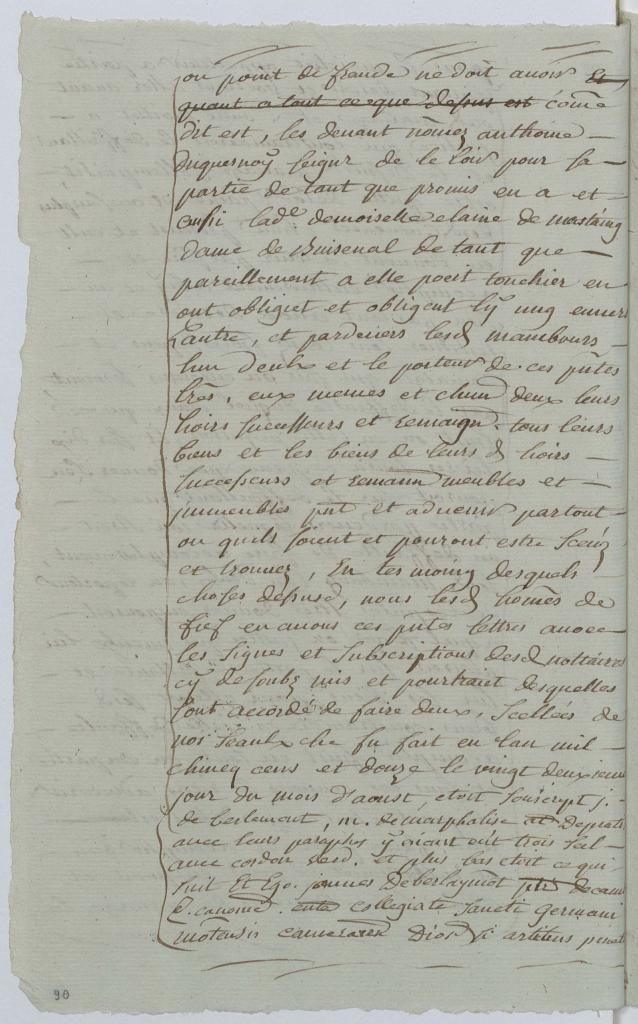 ou point de fraude ne doit avoir Et
quant a tout ceque dessus est côme
Dit est, les devant nômez anthoine
Duquesnoÿ seignr de le Loir pour sa
partie de tant que promis en a et
aussi lade demoiselle elaine de mastaing
dame de Buisenal De tant que
pareillement a elle poeit touchier en
ont obligiet et obligent lÿ ung envers
L'autre, et pardeviers lesd mambours
lun deulx et le porteur de ces pntes
lrès, eux memes et chun deux leurs
hoirs successeurs et remagn. tous leurs
biens et les biens de leurs d hoirs
successeurs et remann meubles et
jmmeubles pnt et advenir partout
ou quels soient et pouront estre sceuz
et trouvez, En tesmoing desquels
choses dessusd, nous lesd hômes de
fief en avons ces pntes lettres avoec
les signes et subscriptions desd nottaires
cÿ desoubz mis et pourtant desquelles
sont accordé de faire deux, scellées de
nos seaulx che fu fait en lan mil
chincq cens et douze le vingt deuxieme
jour du mois d'aoust, etoit souscript j.
de berlemont, m. demarphalise
avec leurs paraphes ÿ aiant eut trois seel
avec cordon verd. et plus bas etoit ce qui
suit Et Ego joannes Deberlaymôt ptr decanu
canonic. collegiate sancti Germani
motensis cameracen Dios
90